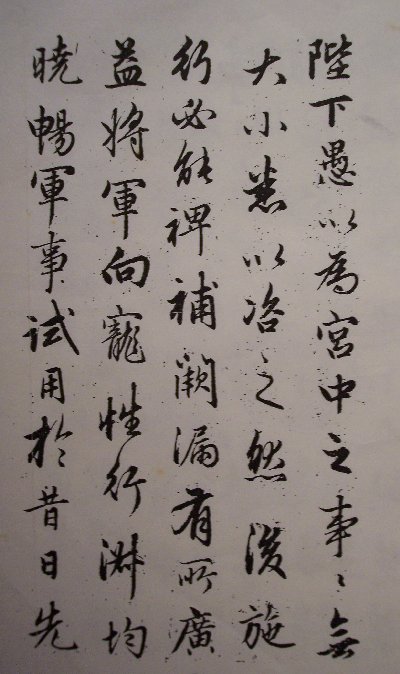 陛下愚以為宮中之事〻無
大小悉以咨之然後施
行必能裨補闕漏有所廣
益將軍向寵性行淑均
曉暢軍事試用於昔日先